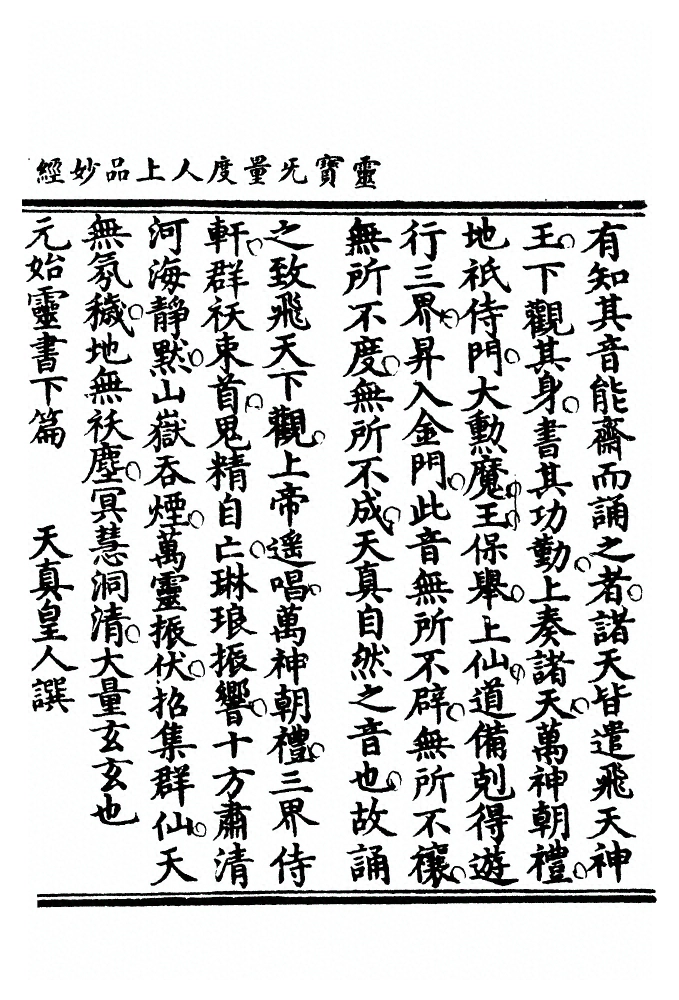 靈寶旡量度人上品妙經
有知其音能齋而誦之者。諸天皆遣飛天神
王。下觀其身。書其功勤。上奏諸天。萬神朝禮。
地祇侍門。大勳魔王。保舉。上仙。道備剋得遊
行三界。昇入金門。此音無所不辟。無所不禳。
無所不度。無所不成。天真自然之音也。故誦
之致飛天下觀。上帝遥唱。萬神朝禮。三界侍
軒。群祅束首。鬼精自亡。琳琅振響。十方肅清
河海靜默。山嶽吞煙。萬靈振伏。招集群仙。天
無氛穢。地無祅塵。冥慧洞清。大量玄玄也
元始靈書下篇　天真皇人譔